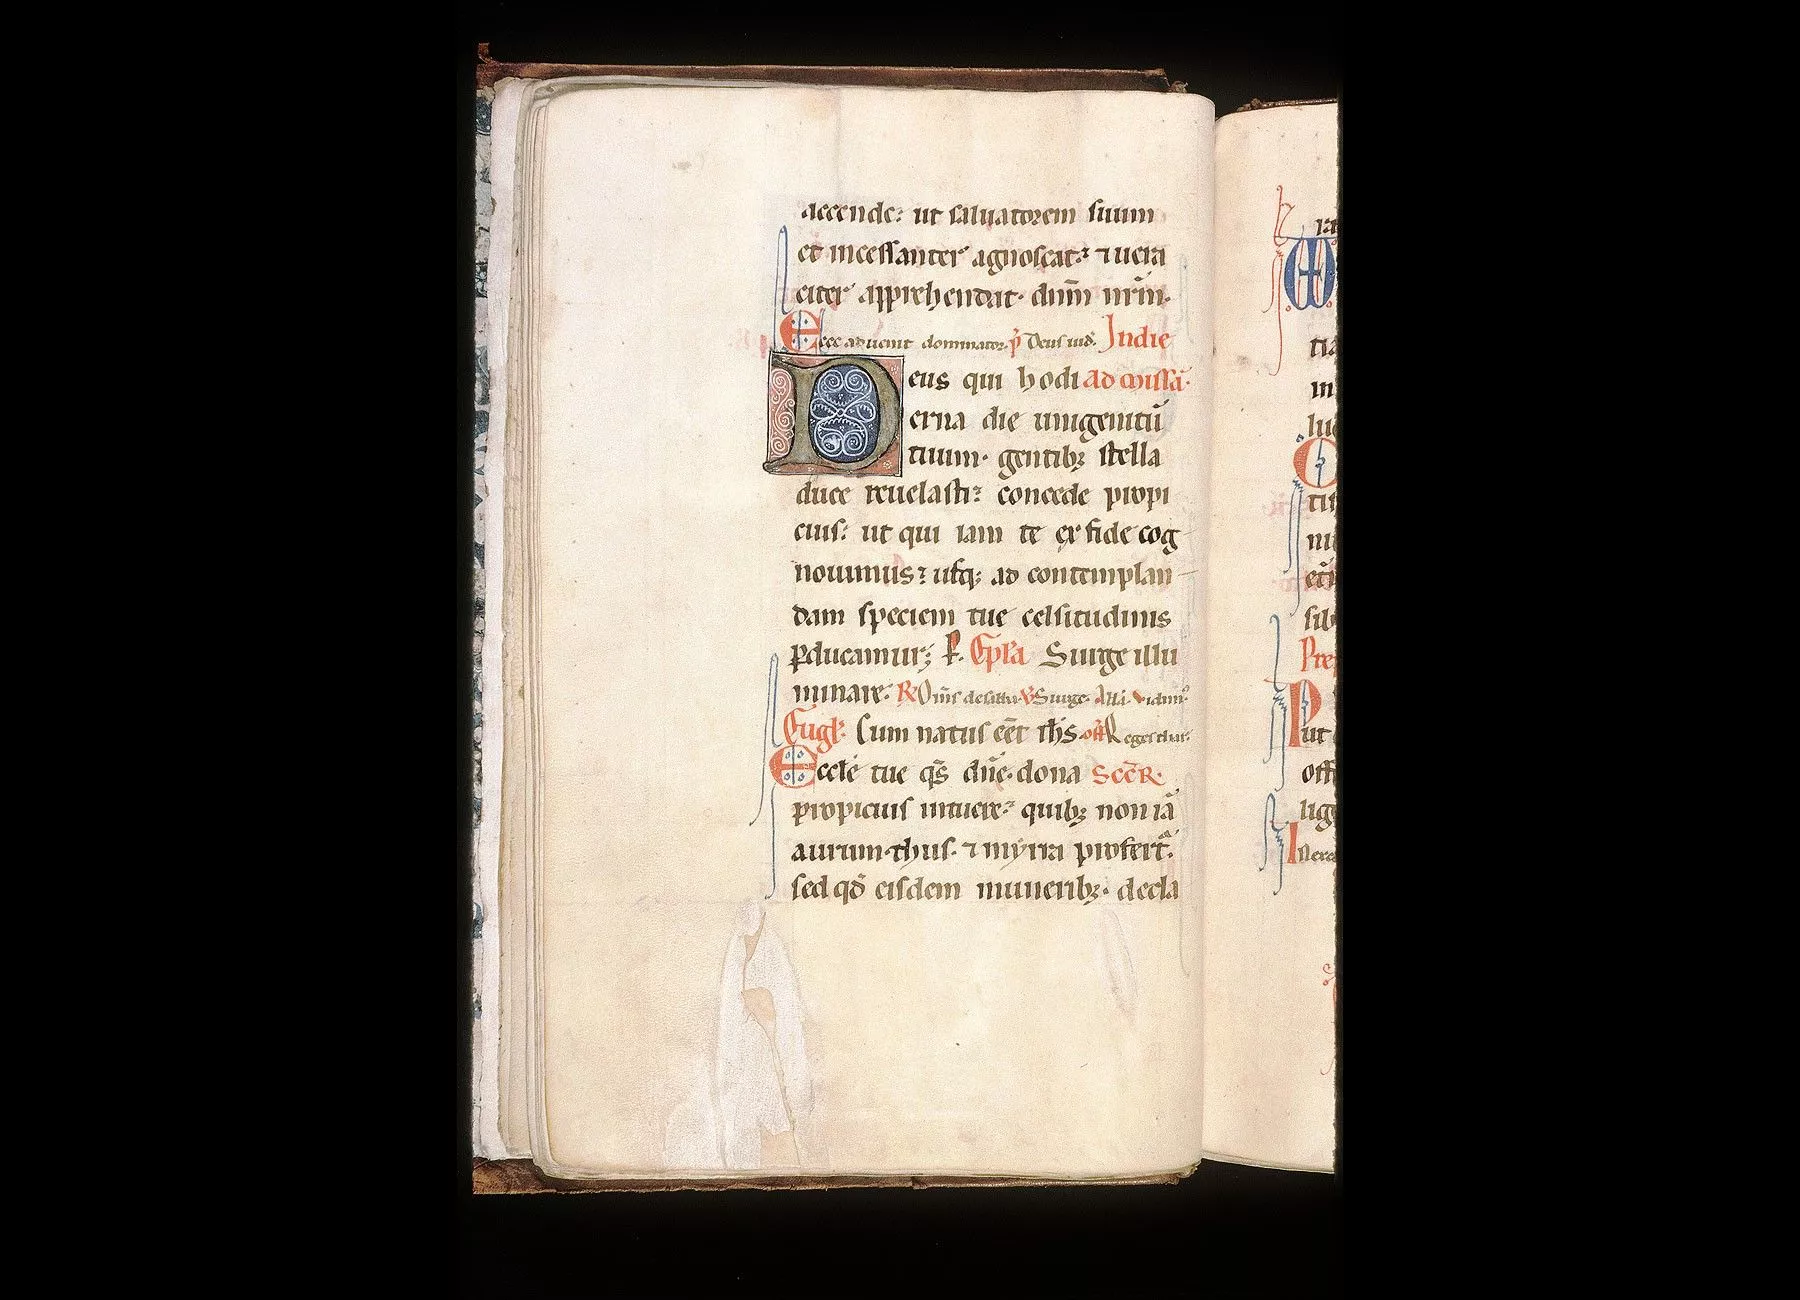 accende: ut saluatorem suum
et incessanter agnoscat: ⁊ uera
citer apprehendat. dnm̄ nr̄m.
Ecce aduenit dominator. p̄ Deus iud̄. Indie
Deus qui hodi ad missā.
erna die unigenitū
tuum. gentibꝫ stella
duce reuelasti: concede propi
cius: ut qui iam te ex fide cog
nouimus: usqꝫ ad contemplan
dam speciem tue celsitudinis
ꝑducamur; P. Ep̄la Surge illu
minare. R Om̄s de saba. V Surge. All̄a. V idim᷒
Eugl̄. Cum natus eēt ih̄s. off̄ Reges thar.
Eccl̄e tue qs̄ dn̄e. dona SECR.
propicius intuere: quibꝫ non iā
aurum. thus. ⁊ myrra profert̄.
sed qd̄ eisdem muneribꝫ. decla
ra
tia
in
lu
C
ti
sib
Pre
P
ut
off
lig